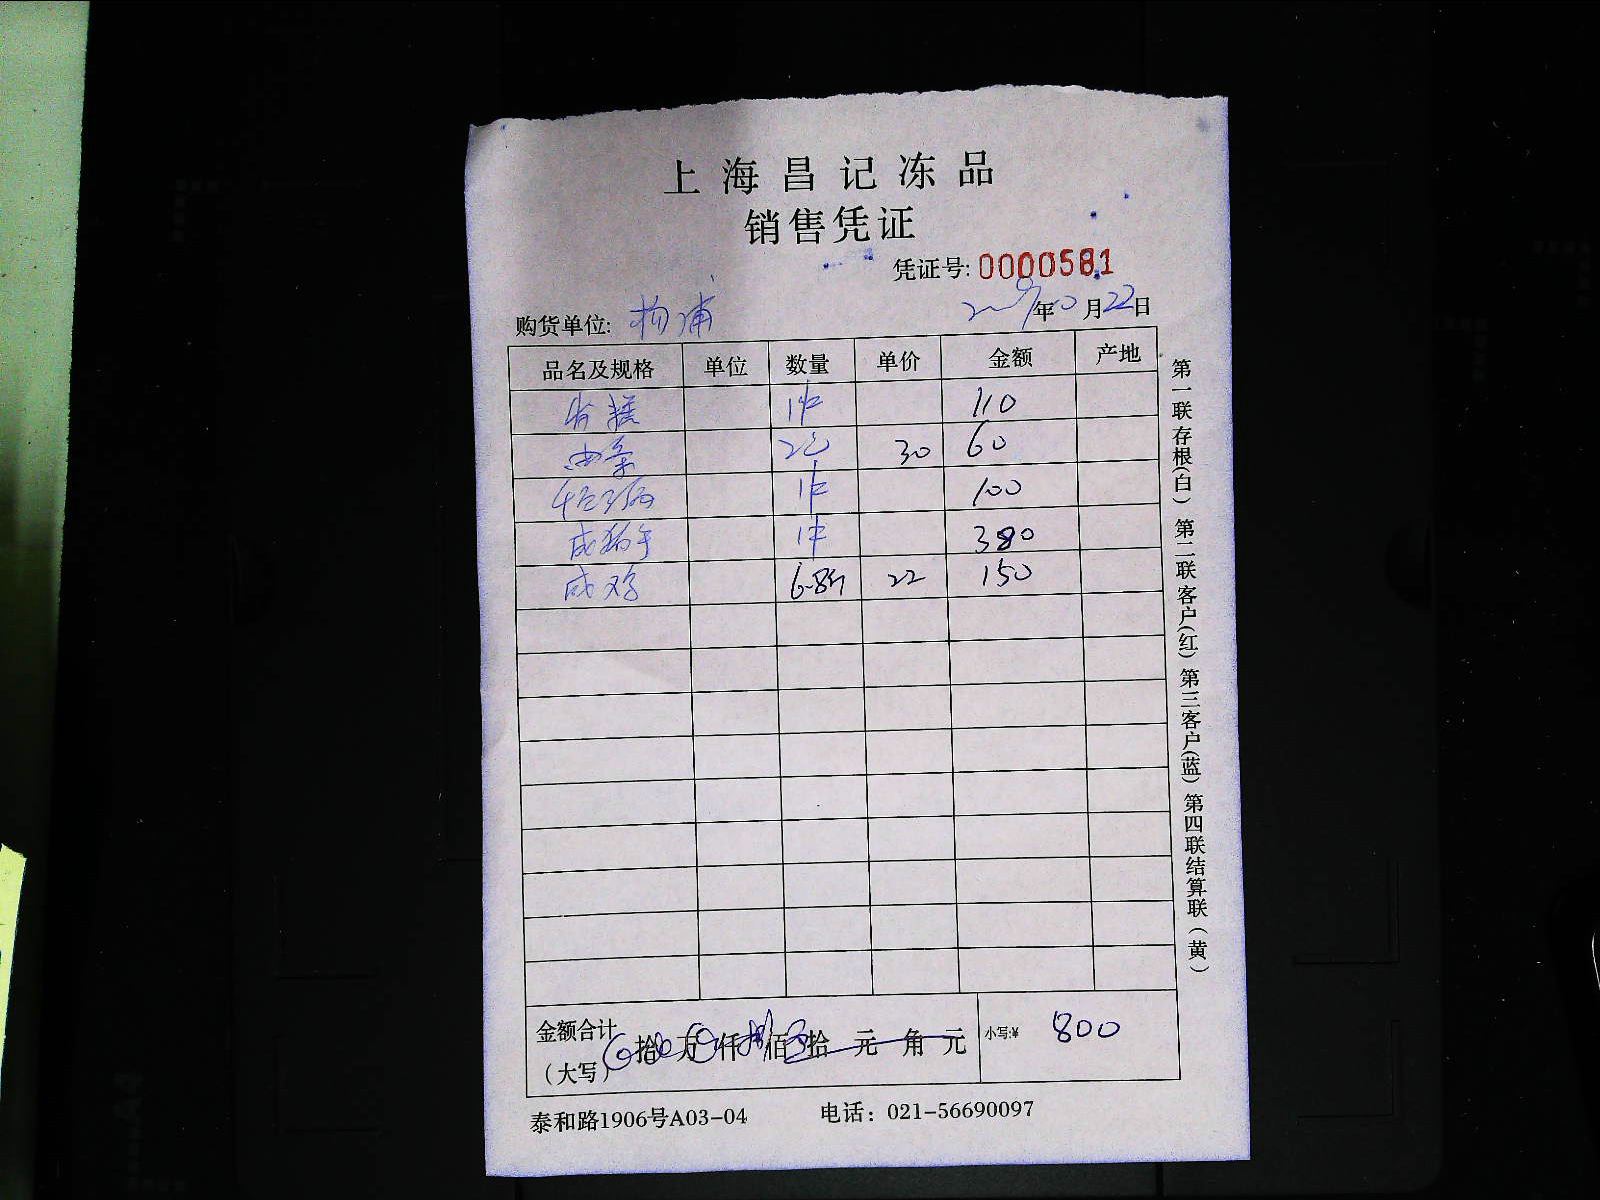 上海昌记冻品
销售凭证
凭证号: 0000581
购货单位: 杨浦 2019年10月22日
品名及规格 单位 数量 单价 金额 产地
1件 110
油条 2包 30 60
1件 100
1件 380
咸鸡 6.8斤 22 150
金额合计 拾 万 仟 捌佰 拾 元 角 元 小写:¥ 800
（大写）
泰和路1906号A03-04 电话：021-56690097
第一联存根(白) 第二联客户(红) 第三客户(蓝) 第四联结算联(黄)